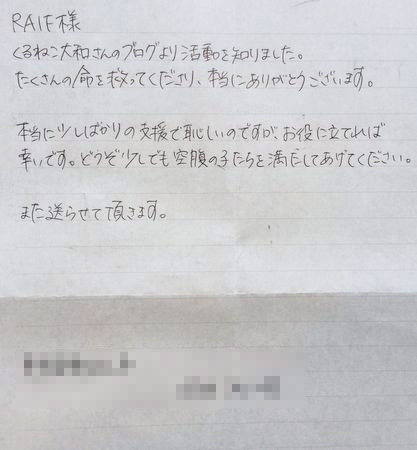 RAIF様
くるねこ大和さんのブログより活動を知りました。
たくさんの命を救ってくださり、本当にありがとうございます。
本当に少しばかりの支援で恥しいのですが、お役に立てれば
幸いです。どうぞ少しでも空腹の子たちを満たしてあげてください。
また送らせて頂きます。